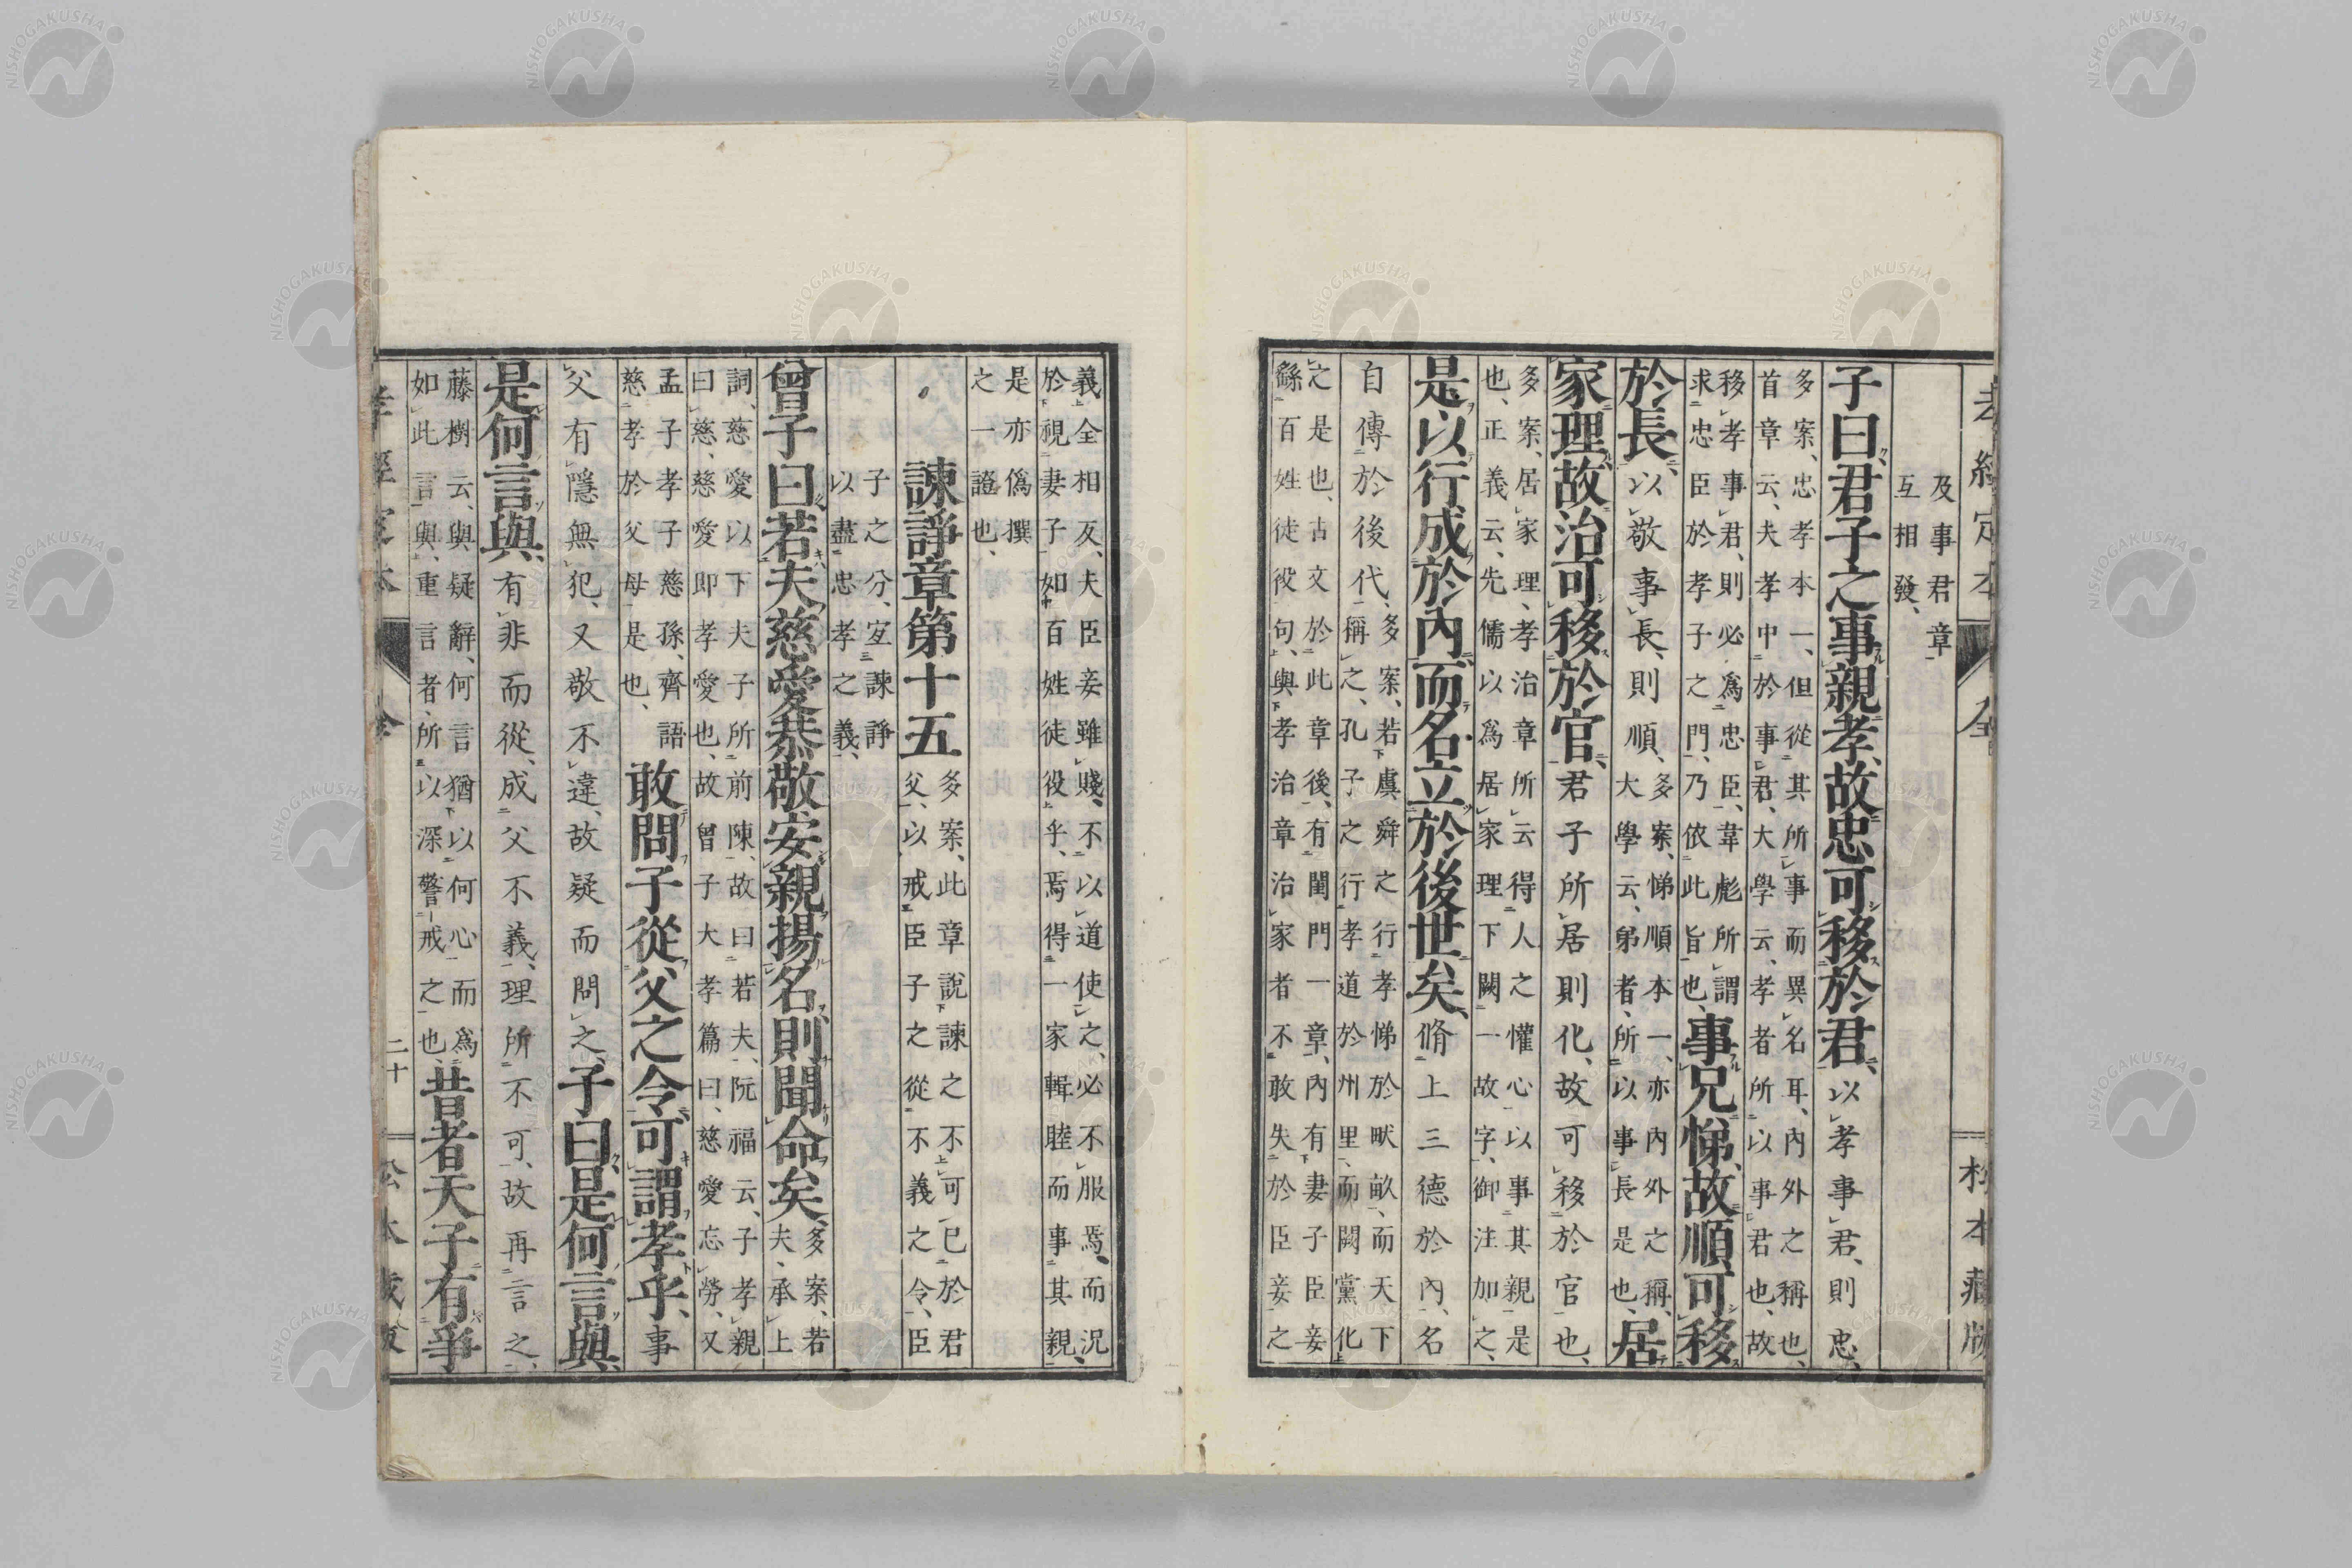 孝經定本 全 松本藏版
及事君章
互相發、
子曰、君子之事親孝、故忠可移於君、以孝事君、則忠、
多案、忠孝本一、但從其所事而異名耳、內外之稱也、
首章云、夫孝中於事君、大學云、孝者所以事君也、故
移孝事君、則必爲忠臣、韋彪所謂
求忠臣於孝子之門、乃依此旨也、
事兄悌、故順可移
於長、以敬事長、則順、
多案、悌順本一、亦內外之稱、
大學云、弟者、所以事長是也、
居
家理、故治可移於官、君子所居則化、故可移於官也、
多案、居家理、孝治章所云得人之懽心以事其親是
也、正義云、先儒以爲居家理下闕一故字、御注加之、
是以行成於內、而名立於後世矣、脩上三德於內、名
自傳於後代、
多案、若虞舜之行孝悌於畎畝、而天下
稱之、孔子之行孝道於州里、而闕黨化
之是也、古文於此章後、有閨門一章、內有妻子臣妾
繇百姓徒役句、與孝治章治家者不敢失於臣妾之
義全相反、夫臣妾雖賤、不以道使之、必不服焉、而況
於視妻子如百姓徒役乎、焉得一家輯睦而事其親、
是亦僞撰
之一證也、
諫諍章第十五
多案、此章說諫之不可已於君
父、以戒臣子之從不義之令、臣
子之分、宜諫諍
以盡忠孝之義、
曾子曰、若夫慈愛恭敬、安親揚名、則聞命矣、
多案、若
夫、承上
詞、慈愛以下、夫子所前陳、故曰若夫、阮福云、子孝親
曰慈、慈愛即孝愛也、故曾子大孝篇曰、慈愛忘勞、又
孟子孝子慈孫、齊語
慈孝於父母是也、
敢問子從父之令、可謂孝乎、事
父有隱無犯、又敬不違、故疑而問之、子曰、是何言與、
是何言與、有非而從、成父不義、理所不可、故再言之、
藤樹云、與疑辭、何言猶以何心而爲
如此言與、重言者、所以深警戒之也、
昔者天子有爭
孝經定本 全 二十 松本藏版